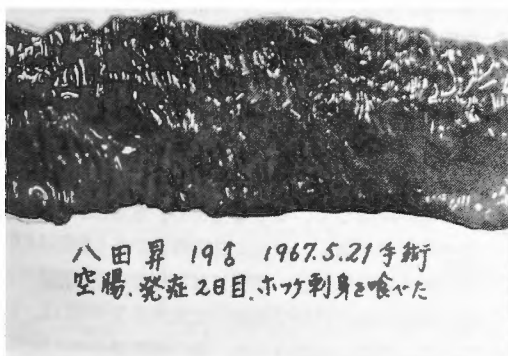 八田昇 19♂ 1967.5.21手術
空腸.発症2日目.ホッケ刺身を喰べた